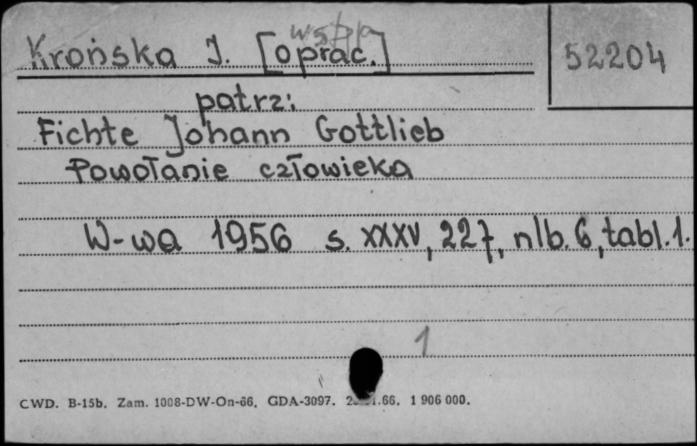 Krońska J. [oprac.]
52204
patrz:
Fichte Johann Gottlieb
Powołanie człowieka
W-wa 1956 s. XXXV, 227, nlb. 6, tabl. 1.
1
CWD. B-15b. Zam. 1008-DW-On-66. GDA-3097. .66. 1 906 000.